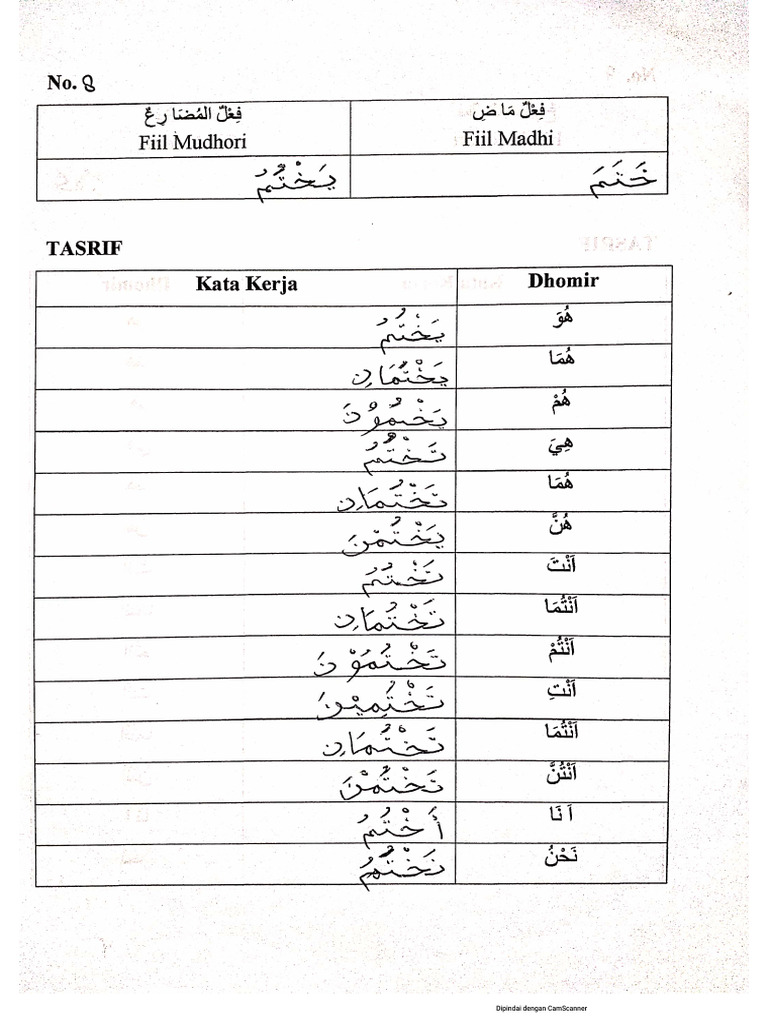 No. 8
فِعْلٌ المُضَارِعٌ فِعْلٌ مَاضِ
Fiil Mudhori Fiil Madhi
يَخْتُمُ خَتَمَ
TASRIF
Kata Kerja Dhomir
يَخْتُمُ هُوَ
يَخْتُمَانِ هُمَا
يَخْتُمُوْنَ هُمْ
تَخْتُمُ هِيَ
تَخْتُمَانِ هُمَا
يَخْتُمْنَ هُنَّ
تَخْتُمُ اَنْتَ
تَخْتُمَانِ اَنْتُمَا
تَخْتُمَوْنَ اَنْتُمْ
تَخْتُمِيْنَ اَنْتِ
تَخْتُمَانِ اَنْتُمَا
تَخْتُمْنَ اَنْتُنَّ
أَخْتُمُ اَنَا
نَخْتُمُ نَحْنُ
Dipindai dengan CamScanner